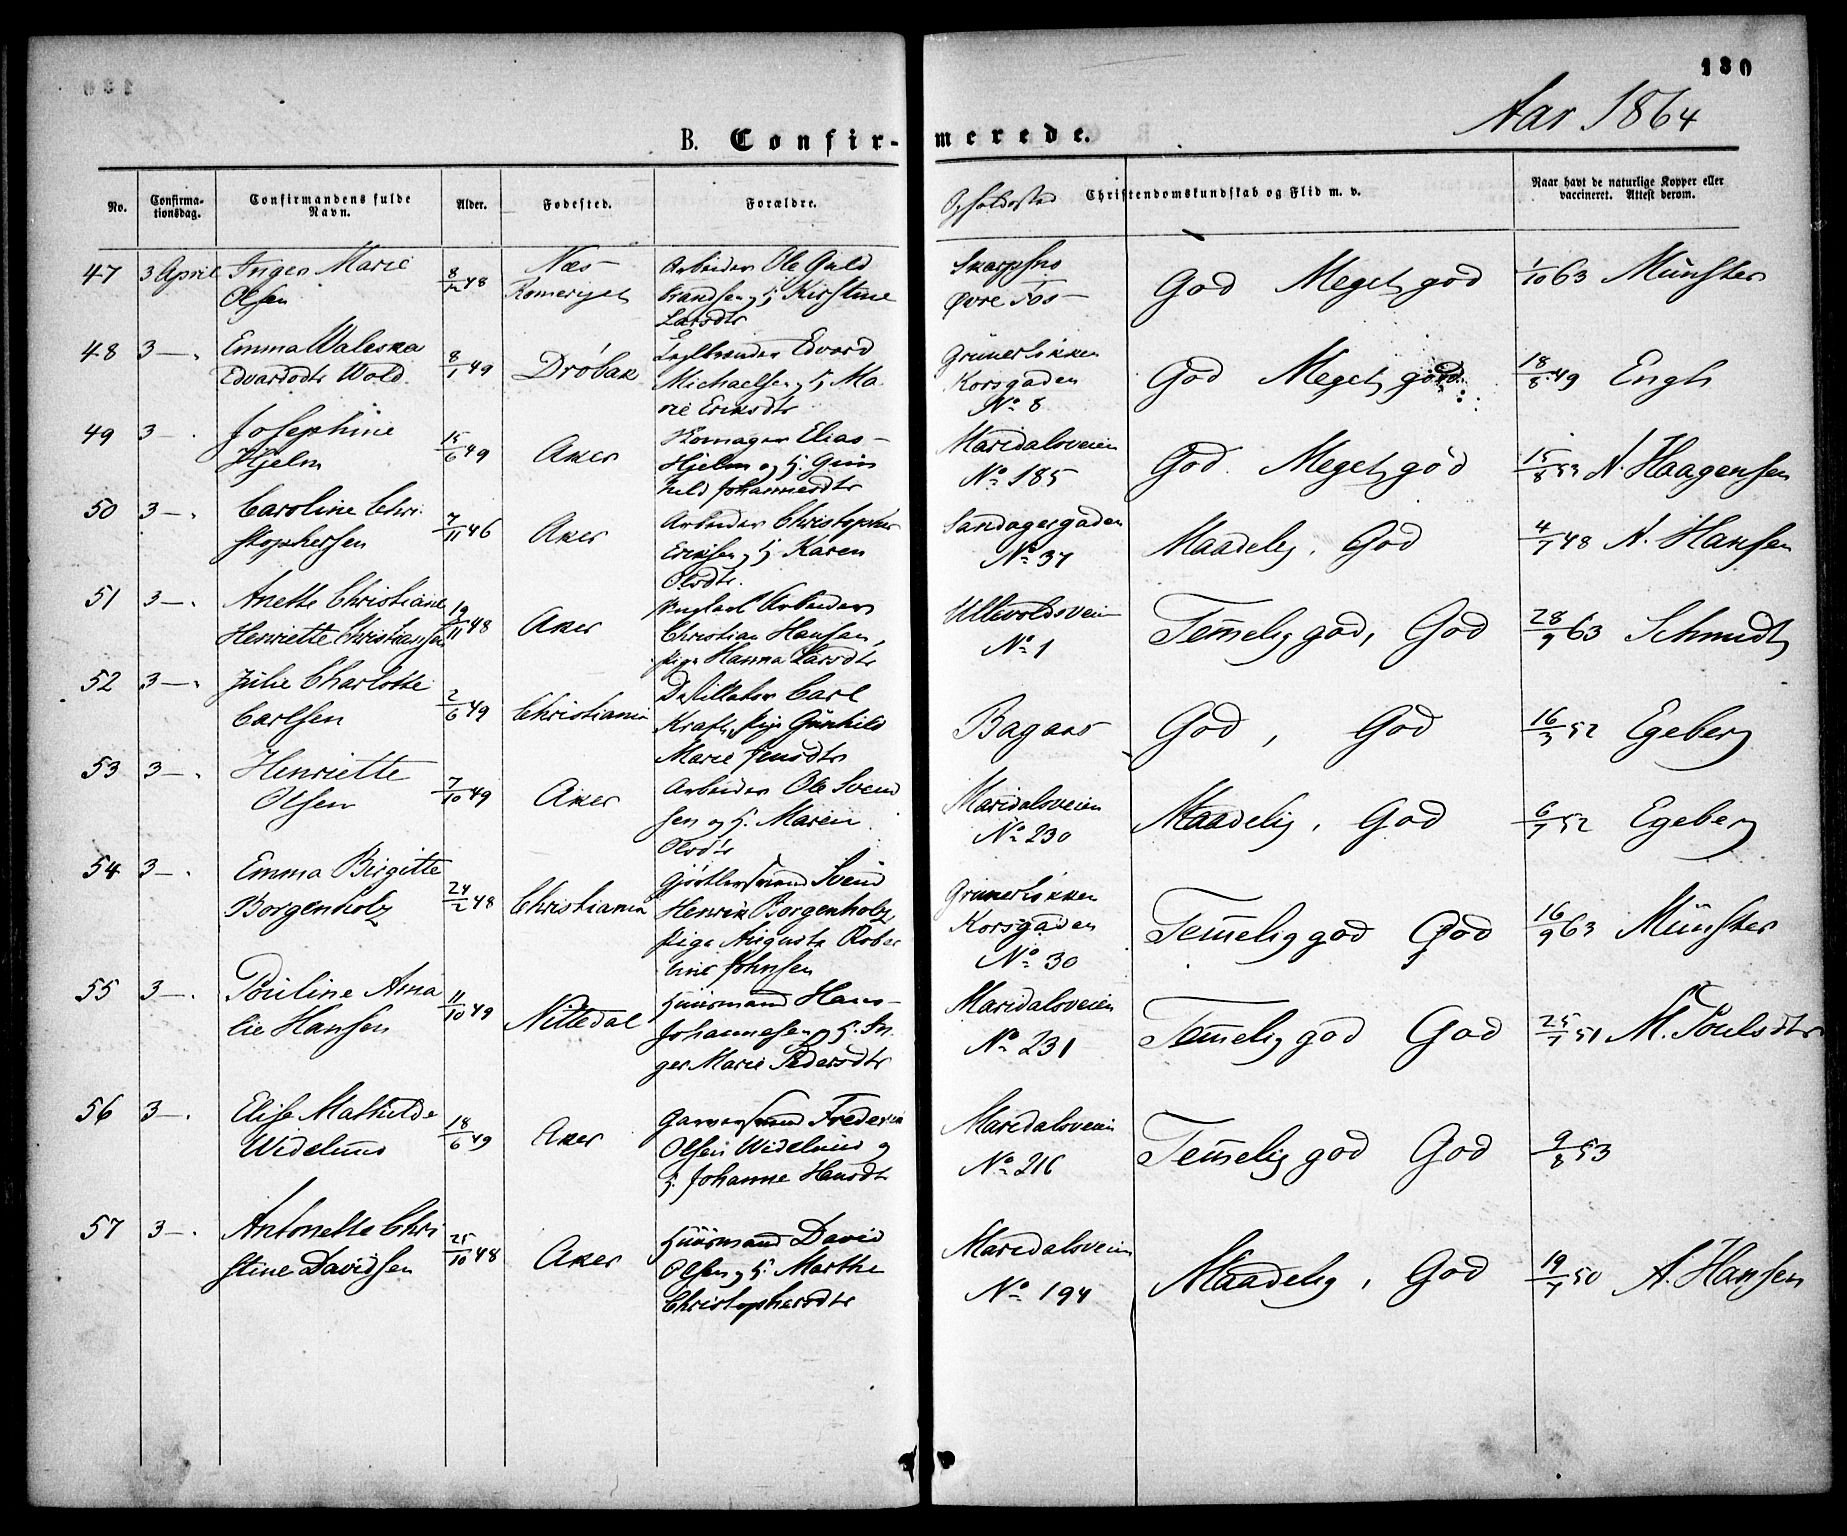 130
Aar 1864
B. Confir-merede.
No. Confirma-tionsdag. Confirmandens fulde Navn. Alder. Fodested. Forældre. Opholdssted Christendomskundskab og Flid m. v. Naar havt de naturlige Kopper eller vaccineret. Attest derom.
47 3 April Inger Marie 8/12 48 Næs- Arbeider Ole Guld Skarpsno God Meget god 1/10 63 Münster
Olsen Romeriget brandsen og h. Kirstine Øvre Fos-
Larsdtr
48 3 — Emma Waleska 8/1 49 Drøbak Edvard Grünerløkken God Meget god 18/8 49 Engh
Edvardsdtr Wold. Michaelsen og h. Ma- Korsgaden
rie Eriksdtr No 8
49 3 — Josephine 15/6 49 Aker Skomager Elias Maridalsveien God. Meget god 15/8 53 N. Haagensen
Hjelm Hjelm og h. Gun No 185
hild Johannesdtr
50 3 — Caroline Chri- 7/11 46 Aker Arbeider Christopher Sandagergaden Maadelig. God 4/7 48 N. Hansen
stophersen Eriksen og h. Karen No 37
Olsdtr.
51 3 — Anette Christiane 19/11 48 Aker Ungkarl Arbeider Ullevoldsvein Temmelig god, God 28/9 63 Schmidt
Henriette Christiansen Christian Hansen, No 1
Pige Hanna Larsdtr
52 3 — Julie Charlotte 2/6 49 Christiania Destillator Carl Bagaas God, God 16/3 52 Egeberg
Carlsen Kraft, Pige Gunhild
Marie Jensdtr
53 3 — Henriette 7/10 49 Aker Arbeider Ole Svend Maridalsveien Maadelig, God 6/7 52 Egeberg
Olsen sen og h. Maren No 230
Olsdtr
54 3 — Emma Birgitte 24/2 48 Christiania Gjørtlersvend Svend Grünerløkken Temmelig god God 16/9 63 Münster
Borgenholz Henrik Borgenholz, Korsgaden
Pige Augusta Rober No 30
tine Johnsen
55 3 — Pouline Ama 11/10 49 Nittedal Huusmand Hans Maridalsveien Temmelig god God 25/7 51 M. Poulsdtr
lie Hansen Johannesen og h. In No 231
ger Marie Pedersdtr
56 3 — Elise Mathilde 18/6 49 Aker Garversvend Frederik Maridalsveien Temmelig god God 9/8 53
Widelund Olsen Widelund og No 216
h. Johanne Hansdtr
57 3 — Antonette Chri 25/10 48 Aker Huusmand David Maridalsveien Maadelig, God 19/7 50 A. Hansen
stine Davidsen Olsen og h. Marthe No 194
Christophersdtr